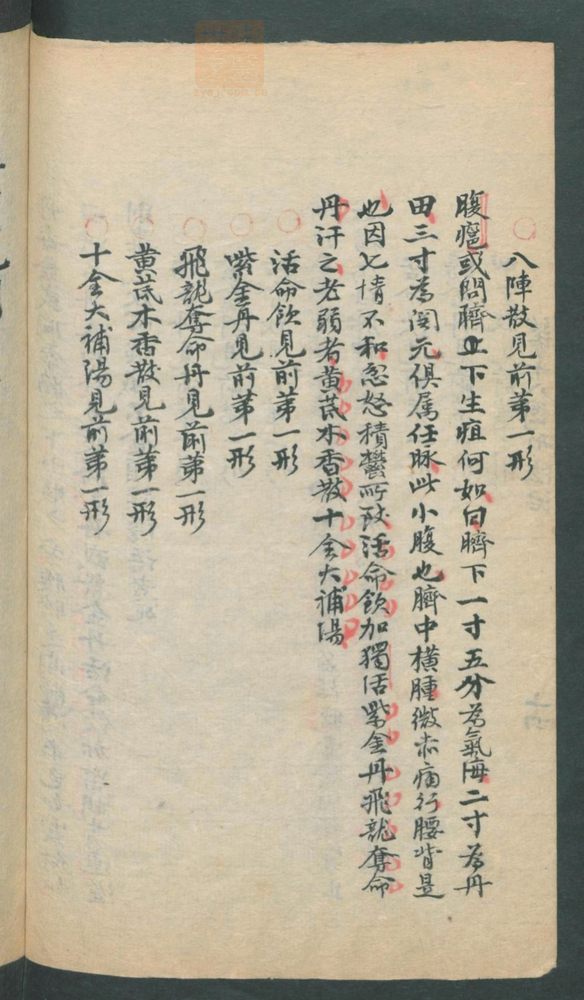 八陣散見前第一形
腹癰或問臍上下生疽何如曰臍下一寸五分為氣海二寸為丹
田三寸為関元俱属任脉此小腹也臍中橫腫微赤痛行腰背是
也因七情不和忿怒積鬱所致活命飲加獨活紫金丹飛龍奪命
丹汗之老弱者黄茋木香散十全大補湯
活命飲見前第一形
紫金丹見前第一形
飛龍奪命丹見前第一形
黄茋木香散見前第一形
十全大補湯見前第一形